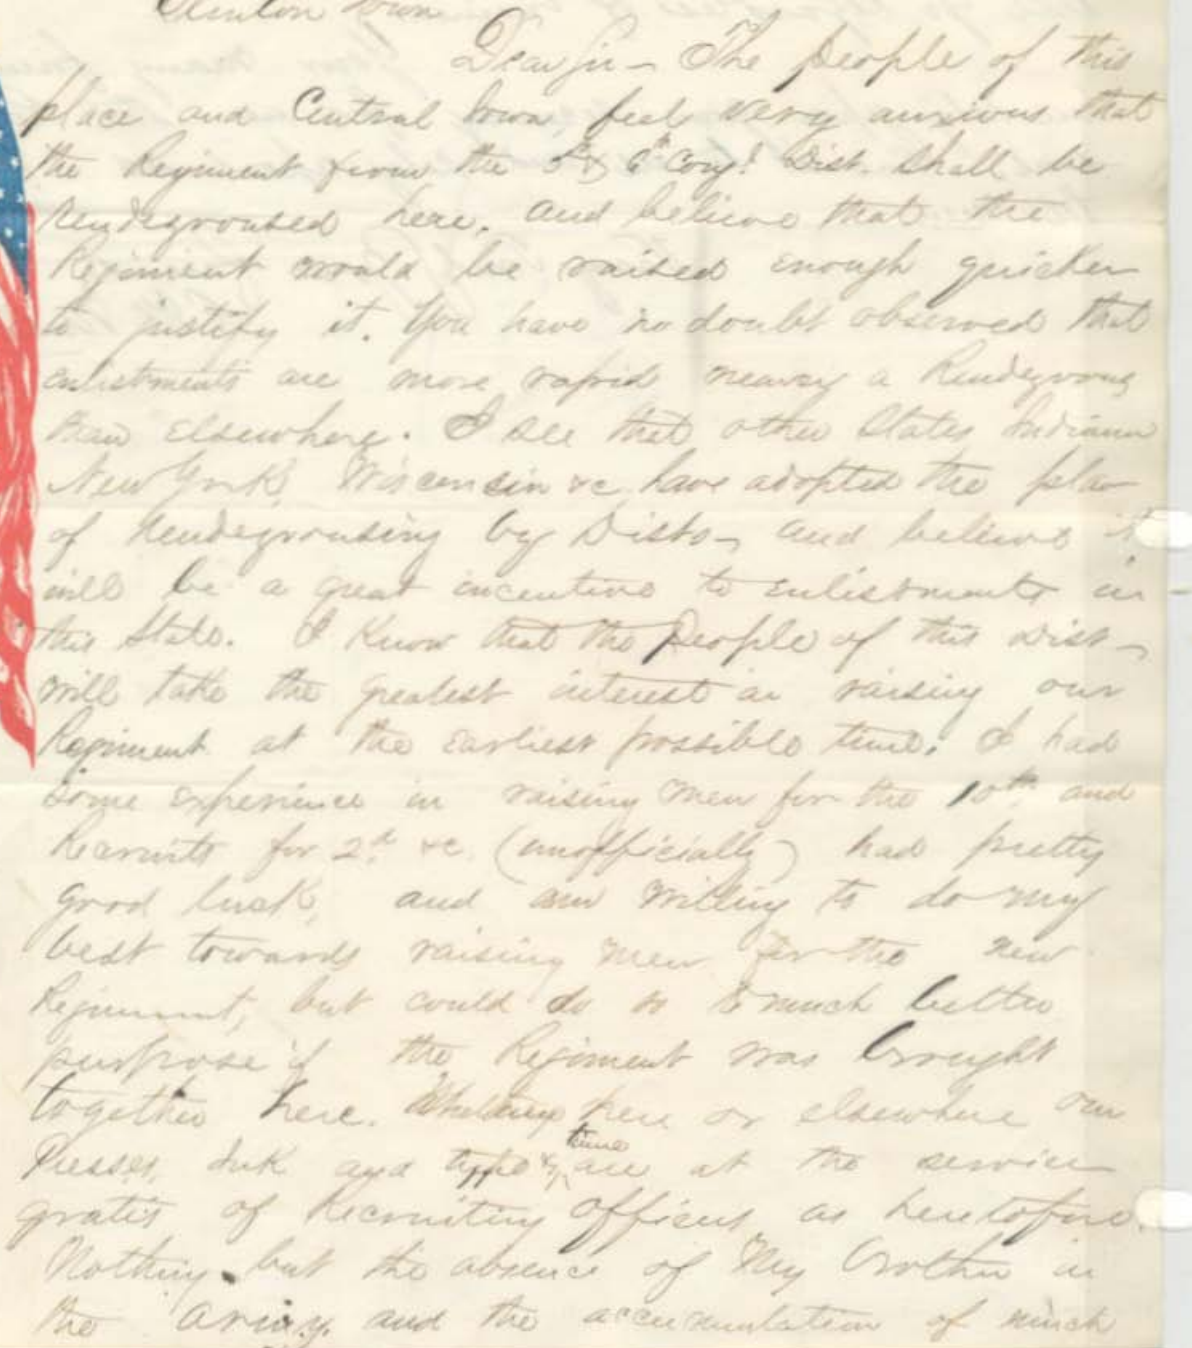 Clinton Iowa
Dear Sir – The people of this
place and Central Iowa, feel very anxious that
the Regiment from the 5th & 6th Cong! Dist. shall be
rendezvoused here, and believe that the
Regiment would be raised enough quicker
to justify it. You have no doubt observed that
enlistments are more rapid nearey a Rendezvous
than elsewhere. I see that other States Indiana
New York, Wisconsin &c have adopted the plan
of rendezvousing by Dists – and believe it
will be a great incentive to enlistments in
this State. I know that the people of this Dist –
will take the greatest interest in raising our
Regiment at the earliest possible time. I had
some experience in raising men for the 10th and
Recruits for 2d &c (unofficially) had pretty
good luck, and am willing to do my
best towards raising men for the new
Regiment, but could do so to much better
purpose if the Regiment was brought
together here. here or elsewhere our
Presses, Ink and type & time are at the service
gratis of Recruiting Officers as heretofore.
Nothing but the absence of My brother in
the Army and the accumulation of much